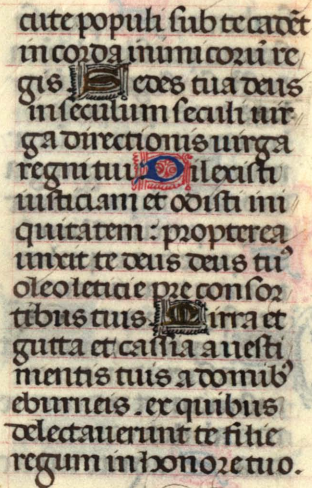 cute populi sub te cadēt
in corda inimicorū re
gis Sedes tua deus
in seculum seculi uir
ga directionis uirga
regni tui Dilexisti
iusticiam et odisti ini
quitatem : propterea
unxit te deus deus tuꝰ
oleo leticie pre consor
tibus tuis. Mirra et
gutta et cassia a uesti
mentis tuis a domibꝰ
eburneis . ex quibus
delectauerunt te filie
regum in honore tuo .